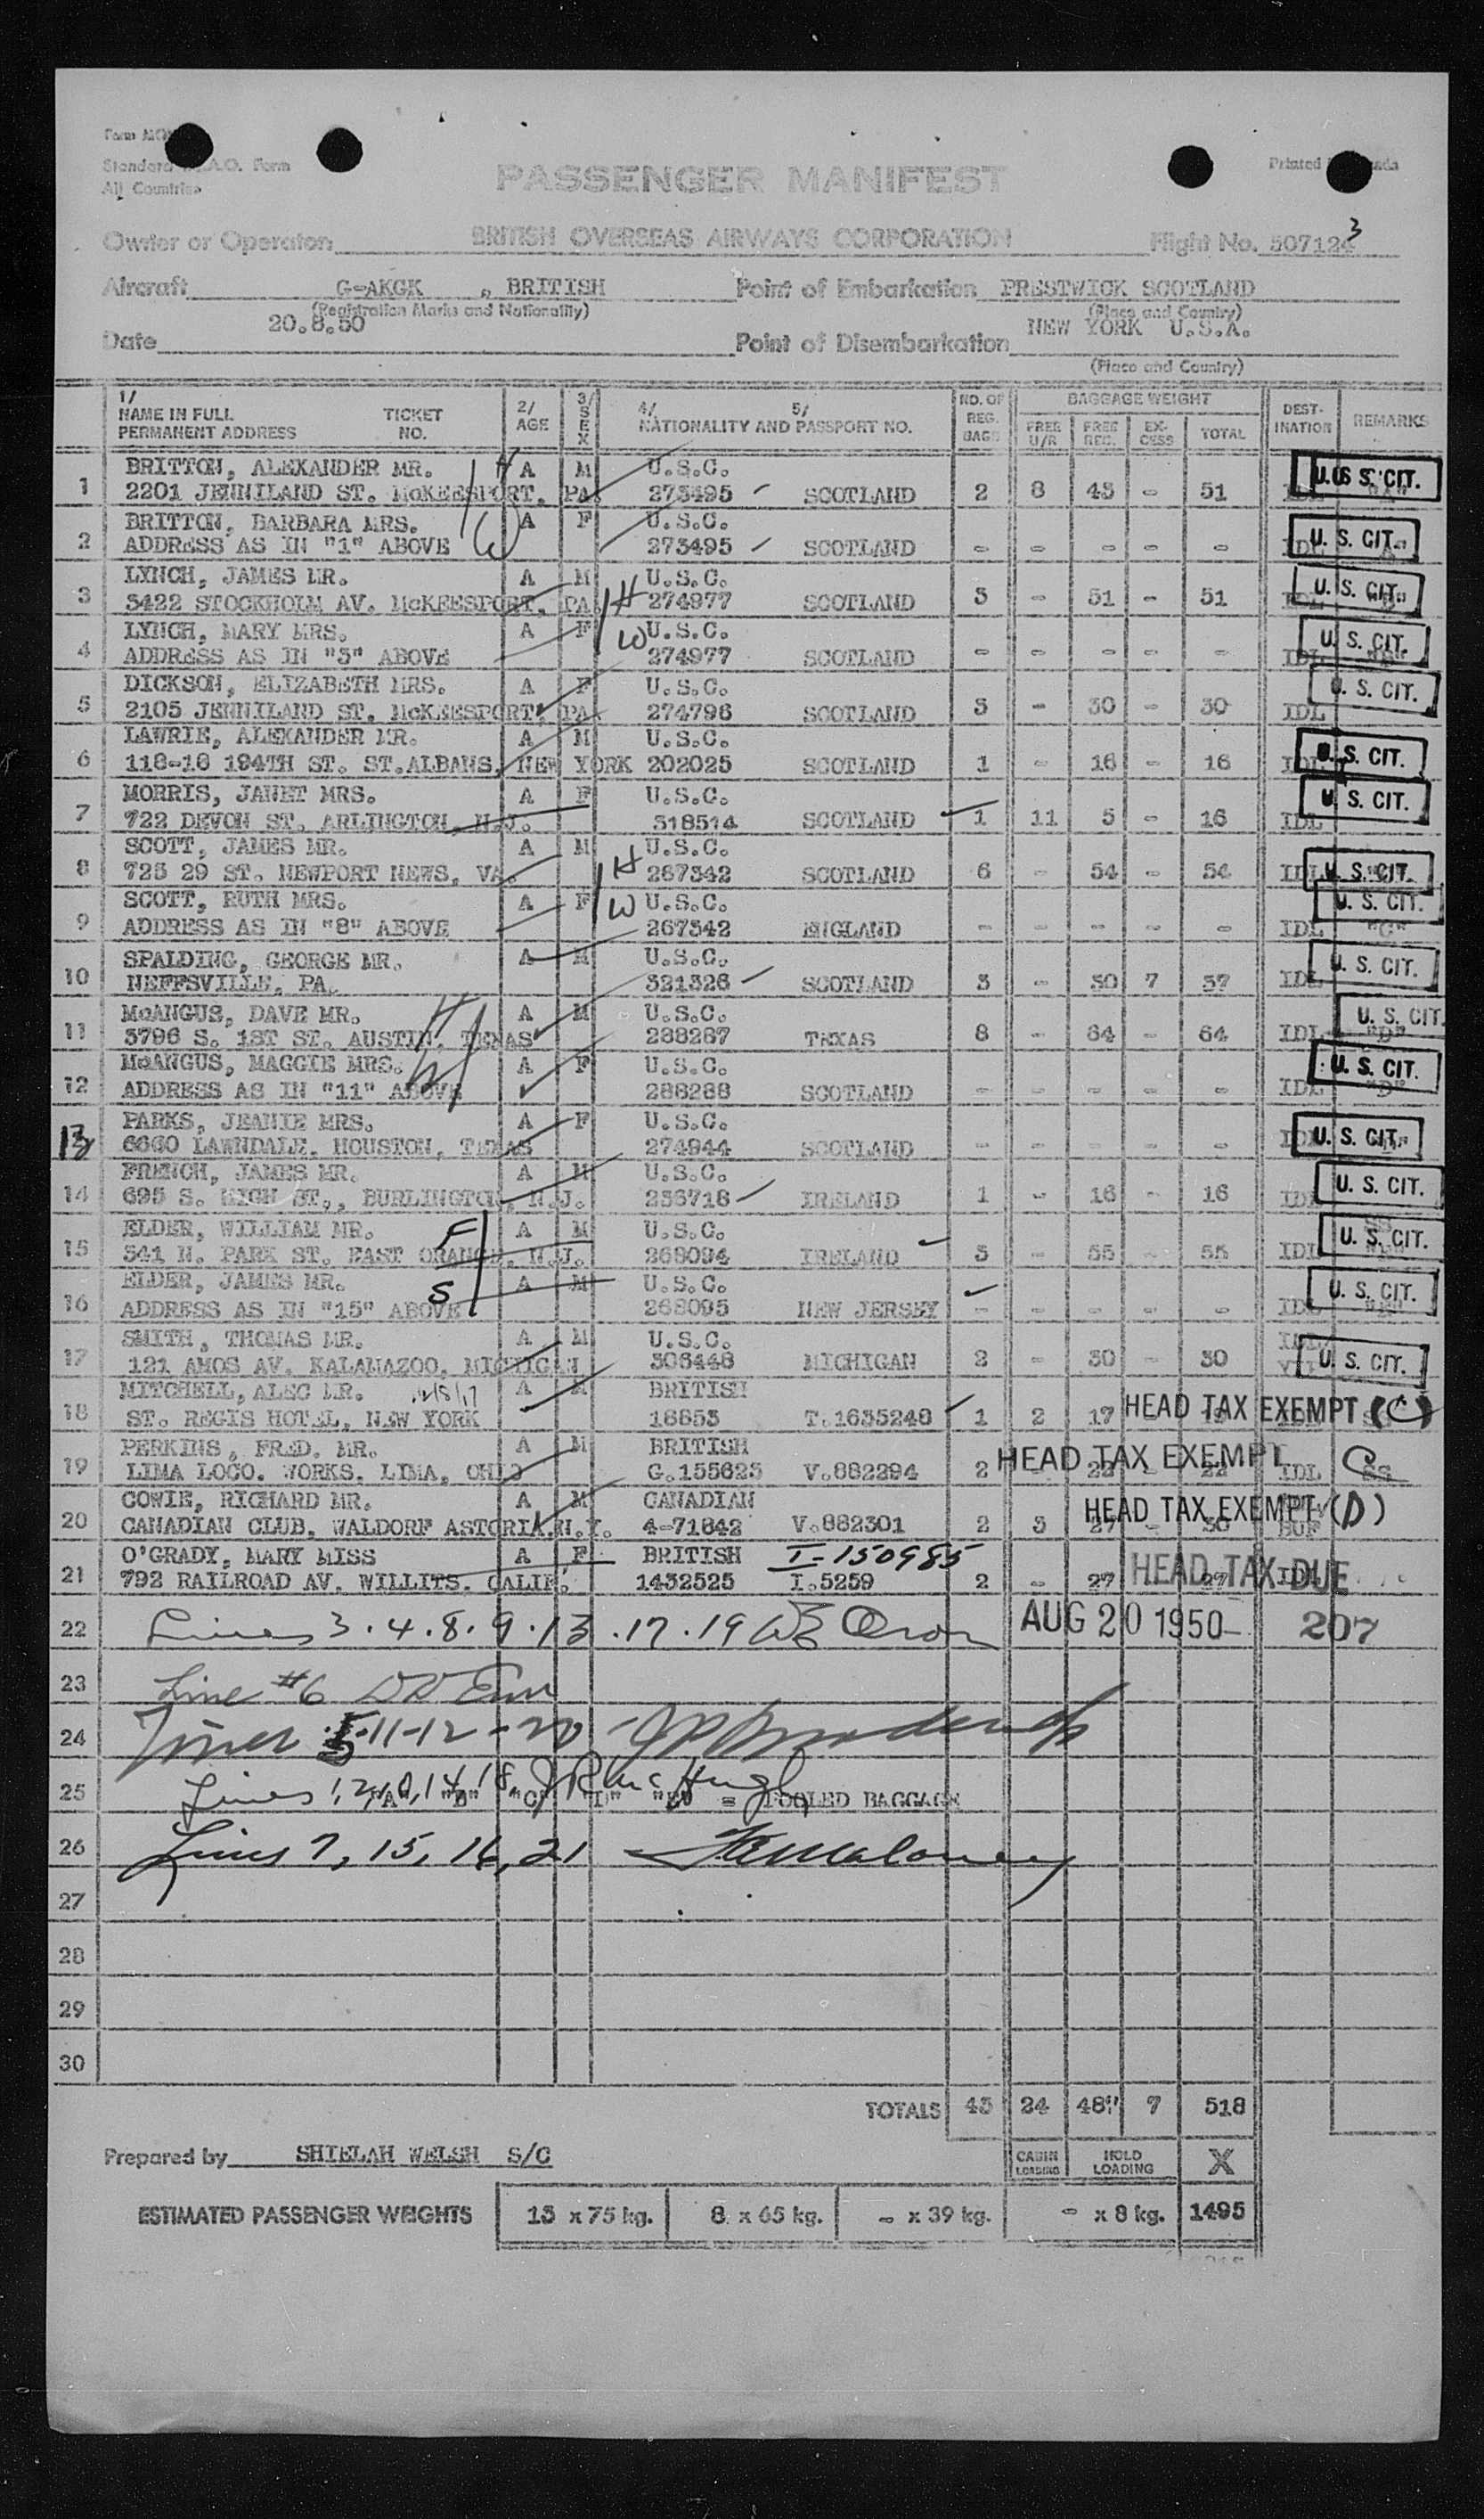 Standard I.C.A.O. Form
All Countries
Printed
PASSENGER MANIFEST
Owner or Operator BRITISH OVERSEAS AIRWAYS CORPORATION Flight No. 507124 3
Aircraft G-AKGK , BRITISH Point of Embarkation PRESTWICK SCOTLAND
(Registration Marks and Nationality) (Place and Country)
Date 20.8.50 Point of Disembarkation NEW YORK U.S.A.
(Place and Country)
1/ NAME IN FULL PERMANENT ADDRESS TICKET NO. 2/ AGE 3/ SEX 4/ 5/ NATIONALITY AND PASSPORT NO. NO. OF REG. BAGS BAGGAGE WEIGHT FREE U/R FREE REG. EX-CESS TOTAL DEST-INATION REMARKS
BRITTON, ALEXANDER MR. H A M U.S.C.
1 2201 JENNILAND ST. McKEESPORT, PA. 273495 SCOTLAND 2 8 43 - 51 U.S. CIT.
BRITTON, BARBARA MRS. W A F U.S.C.
2 ADDRESS AS IN "1" ABOVE 273495 SCOTLAND - - - - - IDL U. S. CIT.
LYNCH, JAMES MR. A M U.S.C.
3 3422 STOCKHOLM AV. McKEESPORT, PA. H 274977 SCOTLAND 3 - 51 - 51 IDL U. S. CIT.
LYNCH, MARY MRS. A F W U.S.C.
4 ADDRESS AS IN "3" ABOVE 274977 SCOTLAND - - - - - IDL U. S. CIT.
DICKSON, ELIZABETH MRS. A F U.S.C.
5 2105 JENNILAND ST. McKEESPORT, PA 274796 SCOTLAND 3 - 30 - 30 IDL U. S. CIT.
LAWRIE, ALEXANDER MR. A M U.S.C.
6 118-18 194TH ST. ST.ALBANS, NEW YORK 202025 SCOTLAND 1 - 16 - 16 IDL U. S. CIT.
MORRIS, JANET MRS. A F U.S.C.
7 722 DEVON ST. ARLINGTON, N.J. 318514 SCOTLAND 1 11 5 - 16 IDL U. S. CIT.
SCOTT, JAMES MR. A M H U.S.C.
8 725 29 ST. NEWPORT NEWS, VA. 267342 SCOTLAND 6 - 54 - 54 IDL U. S. CIT.
SCOTT, RUTH MRS. A F W U.S.C. U. S. CIT.
9 ADDRESS AS IN "8" ABOVE 267342 ENGLAND - - - - - IDL "C"
SPALDING, GEORGE MR. A M U.S.C.
10 NEFFSVILLE, PA. 321326 SCOTLAND 3 - 30 7 37 IDL U. S. CIT.
McANGUS, DAVE MR. H A M U.S.C. U. S. CIT.
11 3796 S. 1ST ST. AUSTIN, TEXAS 288287 TEXAS 8 - 64 - 64 IDL "D"
McANGUS, MAGGIE MRS. W A F U.S.C. U. S. CIT.
12 ADDRESS AS IN "11" ABOVE 288288 SCOTLAND - - - - - IDL "D"
PARKS, JEANIE MRS. A F U.S.C.
13 6660 LAWNDALE, HOUSTON, TEXAS 274944 SCOTLAND - - - - - U. S. CIT.
FRENCH, JAMES MR. A M U.S.C.
14 695 S. HIGH ST., BURLINGTON, N.J. 236718 IRELAND 1 - 16 - 16 IDL U. S. CIT.
ELDER, WILLIAM MR. F A M U.S.C.
15 341 N. PARK ST. EAST ORANGE, N.J. 268094 IRELAND 3 - 55 - 55 IDL U. S. CIT.
ELDER, JAMES MR. S A M U.S.C.
16 ADDRESS AS IN "15" ABOVE 268095 NEW JERSEY - - - - - IDL U. S. CIT.
SMITH, THOMAS MR. A M U.S.C.
17 121 AMOS AV. KALAMAZOO, MICHIGAN 306448 MICHIGAN 2 - 30 - 30 U. S. CIT.
MITCHELL, ALEC MR. A M BRITISH
18 ST. REGIS HOTEL, NEW YORK 16853 T.1635248 1 2 17 HEAD TAX EXEMPT (C)
PERKINS, FRED, MR. A M BRITISH
19 LIMA LOCO. WORKS, LIMA, OHIO G.155623 V.882294 2 HEAD TAX EXEMPT IDL C
COWIE, RICHARD MR. A M CANADIAN
20 CANADIAN CLUB, WALDORF ASTORIA, N.Y. 4-71842 V.882301 2 3 27 - 30 HEAD TAX EXEMPT (D)
O'GRADY, MARY MISS A F BRITISH I-150985
21 792 RAILROAD AV. WILLITS. CALIF. 1432525 I.5259 2 - 27 - 27 IDL HEAD TAX DUE
22 Lines 3.4.8.9.13.17.19 AUG 20 1950 207
23 Line #6
24 Lines 5-11-12-20
25 Lines 1,2,10,14,18 J R McHugh "A" "B" "C" "D" "E" = POOLED BAGGAGE
26 Lines 7, 15, 16, 21 Maloney
27
28
29
30
TOTALS 43 24 487 7 518
Prepared by SHIELAH WELSH S/C CABIN LOADING HOLD LOADING X
ESTIMATED PASSENGER WEIGHTS 13 x 75 kg. 8 x 65 kg. - x 39 kg. - x 8 kg. 1495